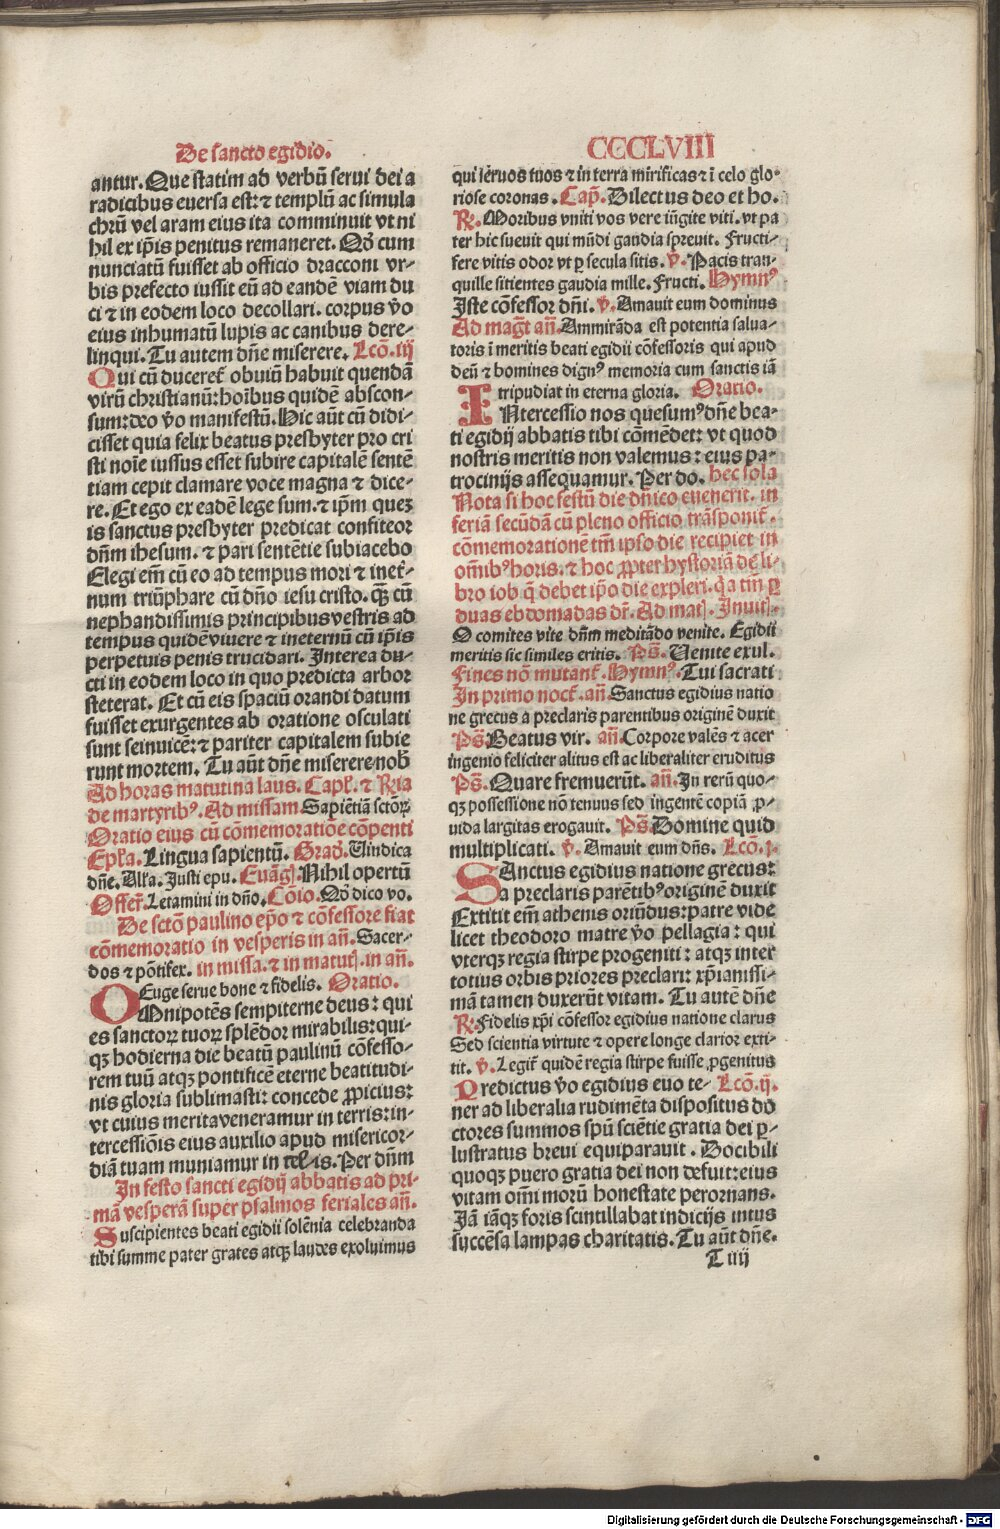 De sancto egidio.
CCCLVIII
antur. Que statim ad verbū serui dei a
radicibus euersa est: ⁊ templū ac simula
chrū vel aram eius ita comminuit vt ni
hil ex ip̄is penitus remaneret. Qd̄ cum
nunciatū fuisset ab officio dracconi vr-
bis prefecto iussit eū ad eandē viam du
ci ⁊ in eodem loco decollari. corpus v̄o
eius inhumatū lupis ac canibus dere-
linqui. Tu autem dn̄e miserere. Lcō. iij
Qui cū duceret̄ obuiū habuit quendā
virū christianū: hoībus quidē abscon-
sum: deo v̄o manifestū. Hic aūt cū didi-
cisset quia felix beatus presbyter pro cri
sti noīe iussus esset subire capitalē sentē
tiam cepit clamare voce magna ⁊ dice-
re. Et ego ex eadē lege sum. ⁊ ip̄m quez
is sanctus presbyter predicat confiteor
dn̄m ihesum. ⁊ pari sentētie subiacebo
Elegi em̄ cū eo ad tempus mori ⁊ inet̄-
num triūphare cū dn̄o iesu cristo. qꝫ cū
nephandissimis principibus vestris ad
tempus quidē viuere ⁊ ineternū cū ip̄is
perpetuis penis trucidari. Interea du-
cti in eodem loco in quo predicta arbor
steterat. Et cū eis spaciū orandi datum
fuisset exurgentes ab oratione osculati
sunt seinuicē: ⁊ pariter capitalem subie
runt mortem. Tu aūt dn̄e miserere nob̄
Ad horas matutina laus. Capl̄. ⁊ Rr̄ia
de martyribꝰ. Ad missam Sapiētiā sctōꝝ
Oratio eius cū cōmemoratiōe cōpenti
Epl̄a. Lingua sapientū. Grad̄. Vindica
dn̄e. Alr̄a. Justi epu. Euāgl̄. Nihil opertū
Offer̄. Letamini in dn̄o. Cōio. Qd̄ dico vo.
De sctō paulino ep̄o ⁊ cōfessore fiat
cōmemoratio in vesperis in an̄. Sacer-
dos ⁊ pōtifex. in missa. ⁊ in matuꝭ. in an̄.
Euge serue bone ⁊ fidelis. Oratio.
OMnipotēs sempiterne deus: qui
es sanctoꝝ tuoꝝ splēdor mirabilis: qui-
qꝫ hodierna die beatū paulinū cōfesso-
rem tuū atqꝫ pontificē eterne beatitudi-
nis gloria sublimasti: concede ꝓpicius:
vt cuius merita veneramur in terris: in-
tercessiōis eius auxilio apud misericor-
diā tuam muniamur in cel-is. Per dn̄m
In festo sancti egidij abbatis ad pri-
mā vesperā super psalmos feriales an̄.
Suscipientes beati egidii solēnia celebranda
tibi summe pater grates atqꝫ laudes exoluimus
qui seruos tuos ⁊ in terra mirificas ⁊ ī celo glo-
riose coronas. Cap̄. Dilectus deo et ho.
R. Moribus vniti vos vere iūgite viti. vt pa
ter hic sueuit qui mūdi gaudia spreuit. Fructi-
fere vitis odor vt ꝑ secula sitis. v̄. Pacis tran-
quille sitientes gaudia mille. Fructi. Hymnꝰ
Iste cōfessor dn̄i. v̄. Amauit eum dominus
Ad maḡt an̄. Ammirāda est potentia salua-
toris ī meritis beati egidii cōfessoris qui apud
deū ⁊ homines dignꝰ memoria cum sanctis iā
tripudiat in eterna gloria. Oratio.
INtercessio nos quesumꝰ dn̄e bea-
ti egidij abbatis tibi cōmēdet: vt quod
nostris meritis non valemus: eius pa-
trocinijs assequamur. Per do. hec sola
Nota si hoc festū die dn̄ico euenerit. in
feriā secūdā cū pleno officio trāsponit̄.
cōmemorationē tm̄ ipso die recipiet in
om̄ibꝰ horis. ⁊ hoc ꝓpter hystoriā de li-
bro iob q̄ debet ip̄o die expleri. q̄a tm̄ ꝑ
duas ebdomadas dr̄. Ad matꝭ. Inuitꝭ.
O comites vite dn̄m meditādo venite. Egidii
meritis sic similes eritis. Ps̄. Venite exul.
Fines nō mutant̄. Hymnꝰ. Tui sacrati
In primo noct̄. an̄. Sanctus egidius natio
ne grecus a preclaris parentibus originē duxit
Ps̄. Beatus vir. an̄. Corpore valēs ⁊ acer
ingenio feliciter alitus est ac liberaliter eruditus
Ps̄. Quare fremuerūt. an̄. In rerū quo-
qꝫ possessione nō tenuus sed ingentē copiā ꝓ-
uida largitas erogauit. Ps̄. Domine quid
multiplicati. v̄. Amauit eum dn̄s. Lcō. j.
SAnctus egidius natione grecus:
a preclaris parētibꝰ originē duxit
Extitit em̄ athenis oriūdus: patre vide
licet theodoro matre v̄o pellagia: qui
vterqꝫ regia stirpe progeniti: atqꝫ inter
totius orbis priores preclari: xp̄ianissi-
mā tamen duxerūt vitam. Tu autē dn̄e
R. Fidelis xp̄i cōfessor egidius natione clarus
Sed scientia virtute ⁊ opere longe clarior exti-
tit. v̄. Legit̄ quidē regia stirpe fuisse ꝓgenitus
Predictus v̄o egidius euo te- Lcō. ij.
ner ad liberalia rudimēta dispositus do
ctores summos spū sciētie gratia dei ꝑ-
lustratus breui equiparauit. Docibili
quoqꝫ puero gratia dei non defuit: eius
vitam om̄i morū honestate perornans.
Jā iāqꝫ foris scintillabat indicijs intus
succēsa lampas charitatis. Tu aūt dn̄e.
T iiij
Digitalisierung gefördert durch die Deutsche Forschungsgemeinschaft - DFG